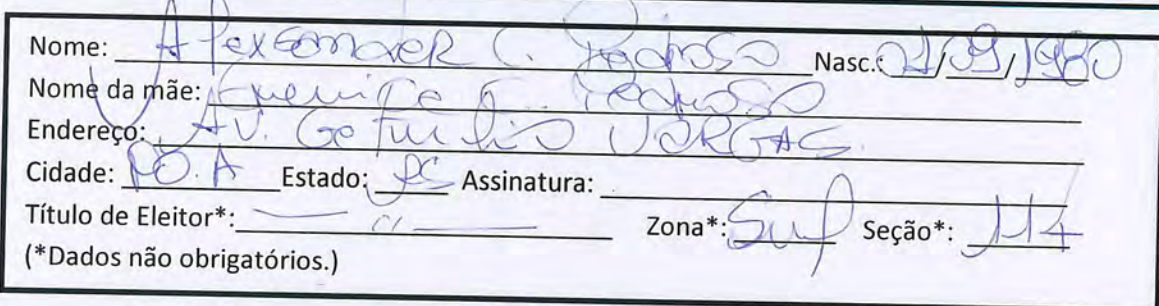 Nome: Alexsander C. Pedroso Nasc.: 01/09/1980
Nome da mãe: C. Pedroso
Endereço: AV. Getulio VARGAS
Cidade: PO.A Estado: RS Assinatura:
Título de Eleitor*: Zona*: Sul Seção*: 114
(*Dados não obrigatórios.)